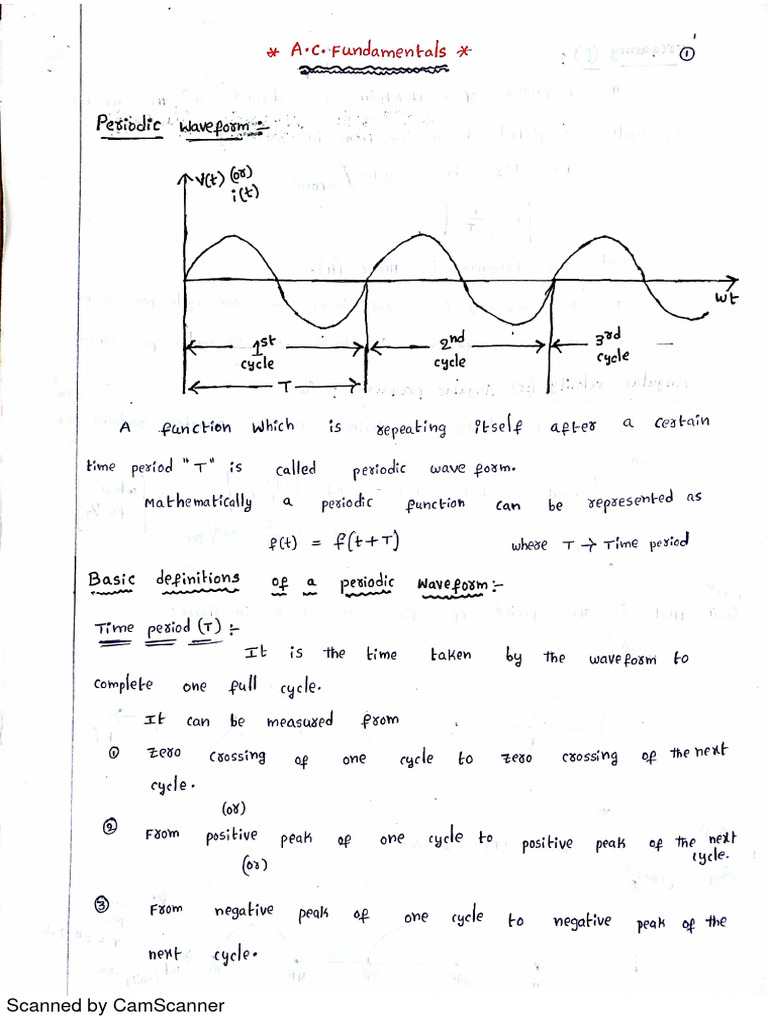 * A.C. Fundamentals *
①
Periodic Waveform :-
V(t) (or)
i(t)
wt
1st
cycle
2nd
cycle
3rd
cycle
T
A function which is repeating itself after a certain
time period "T" is called periodic wave form.
Mathematically a periodic function can be represented as
f(t) = f(t+T) where T → Time period
Basic definitions of a periodic waveform :-
Time period (T) :-
It is the time taken by the waveform to
complete one full cycle.
It can be measured from
① zero crossing of one cycle to zero crossing of the next
cycle.
(or)
② From positive peak of one cycle to positive peak of the next
cycle.
(or)
③ From negative peak of one cycle to negative peak of the
next cycle.
Scanned by CamScanner